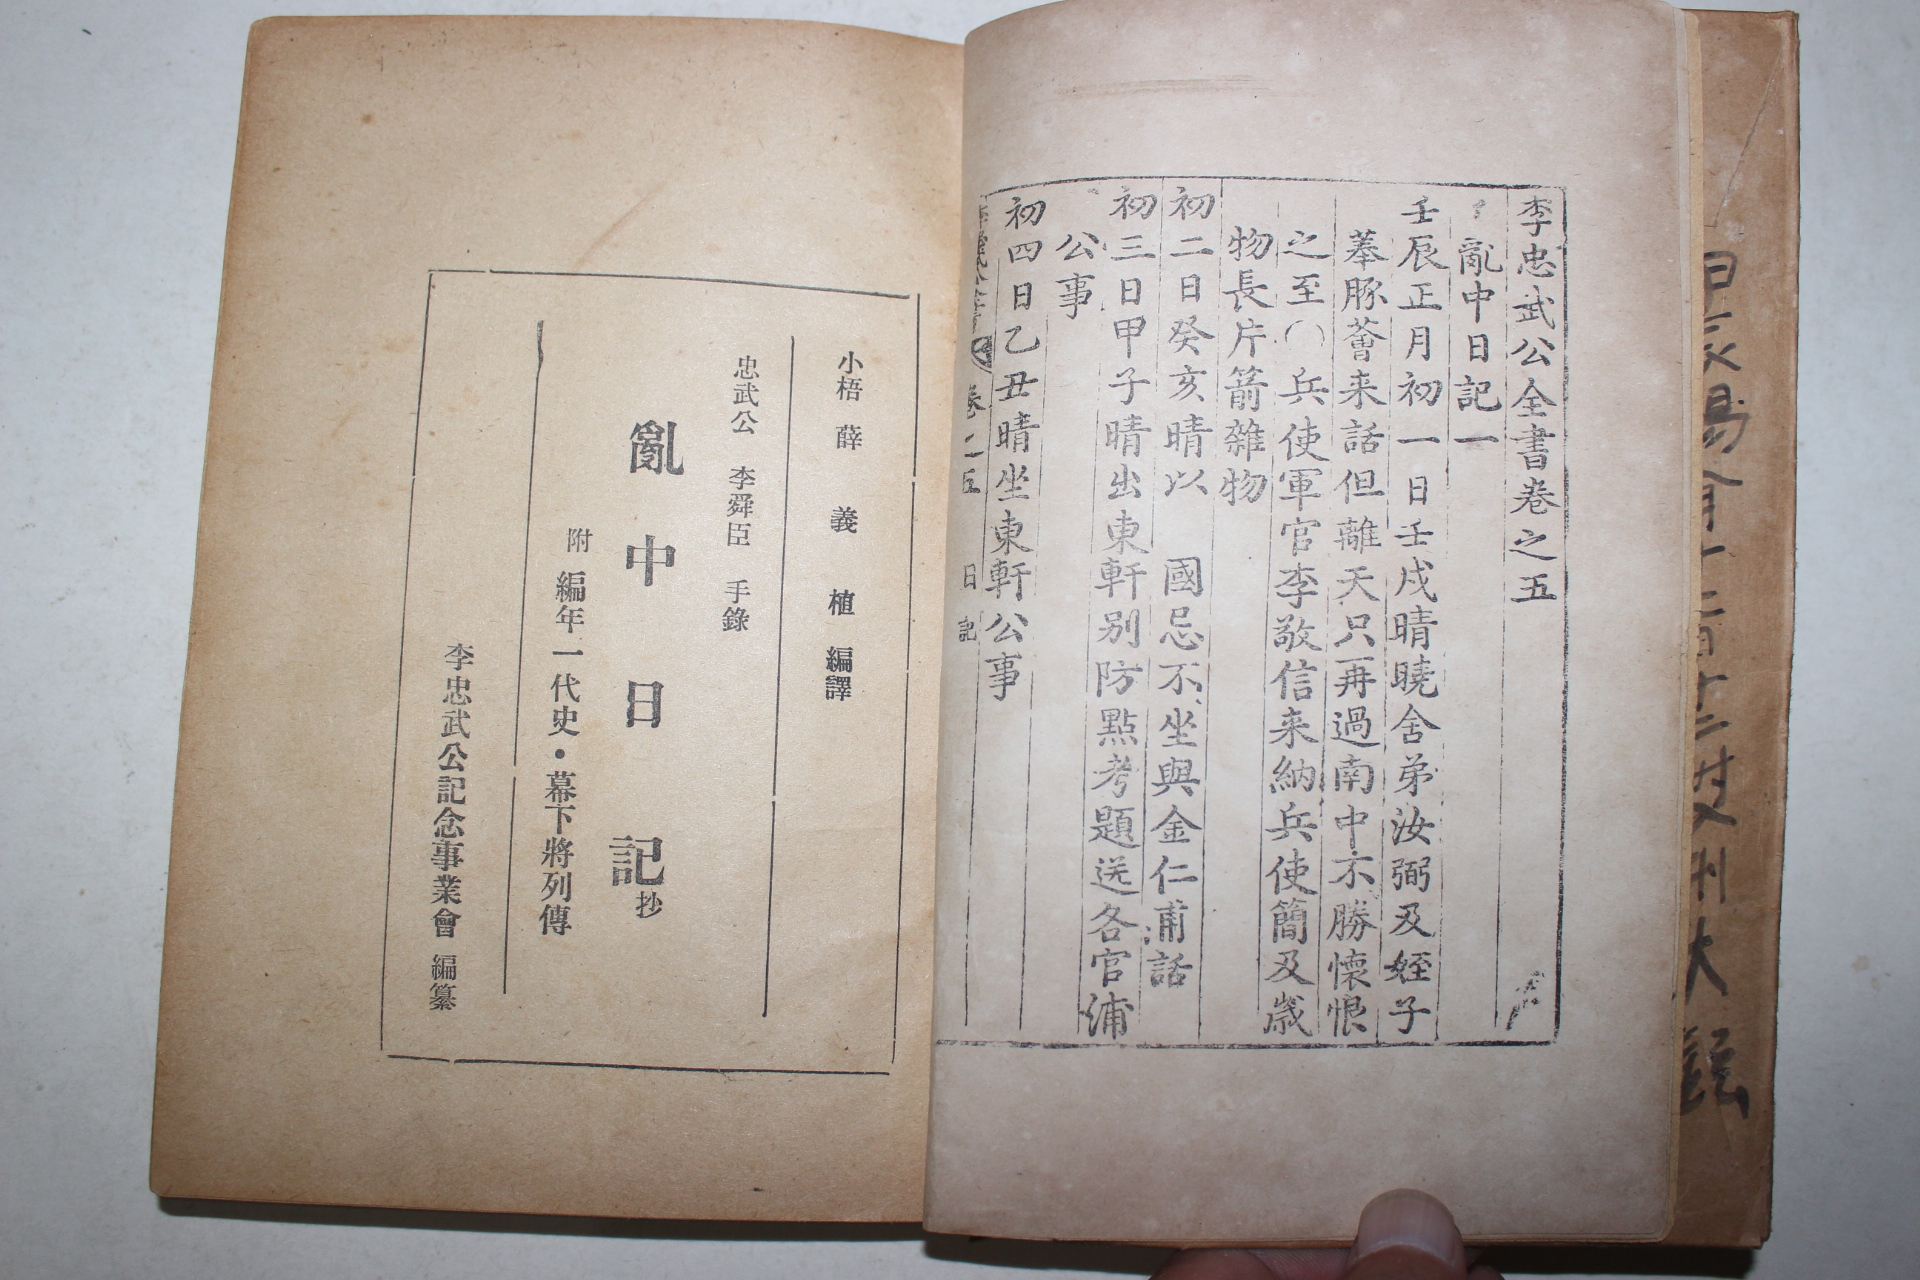 李忠武公全書卷之五
亂中日記一
壬辰正月初一日壬戌晴曉舍弟汝弼及姪子
菶豚薈来話但離天只再過南中不勝懷恨
之至〇兵使軍官李敬信来納兵使簡及歲
物長片箭雜物
初二日癸亥晴以 國忌不坐與金仁甫話
初三日甲子晴出東軒别防點考題送各官浦
公事
初四日乙丑晴坐東軒公事
卷之五 日記
小梧 薛義植 編譯
忠武公 李舜臣 手錄
亂中日記抄
附 編年一代史・幕下將列傳
李忠武公記念事業會 編纂